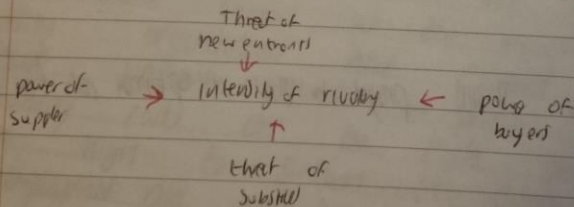 Threat of
new entrants
power of
supplier
intensity of rivalry
power of
buyers
threat of